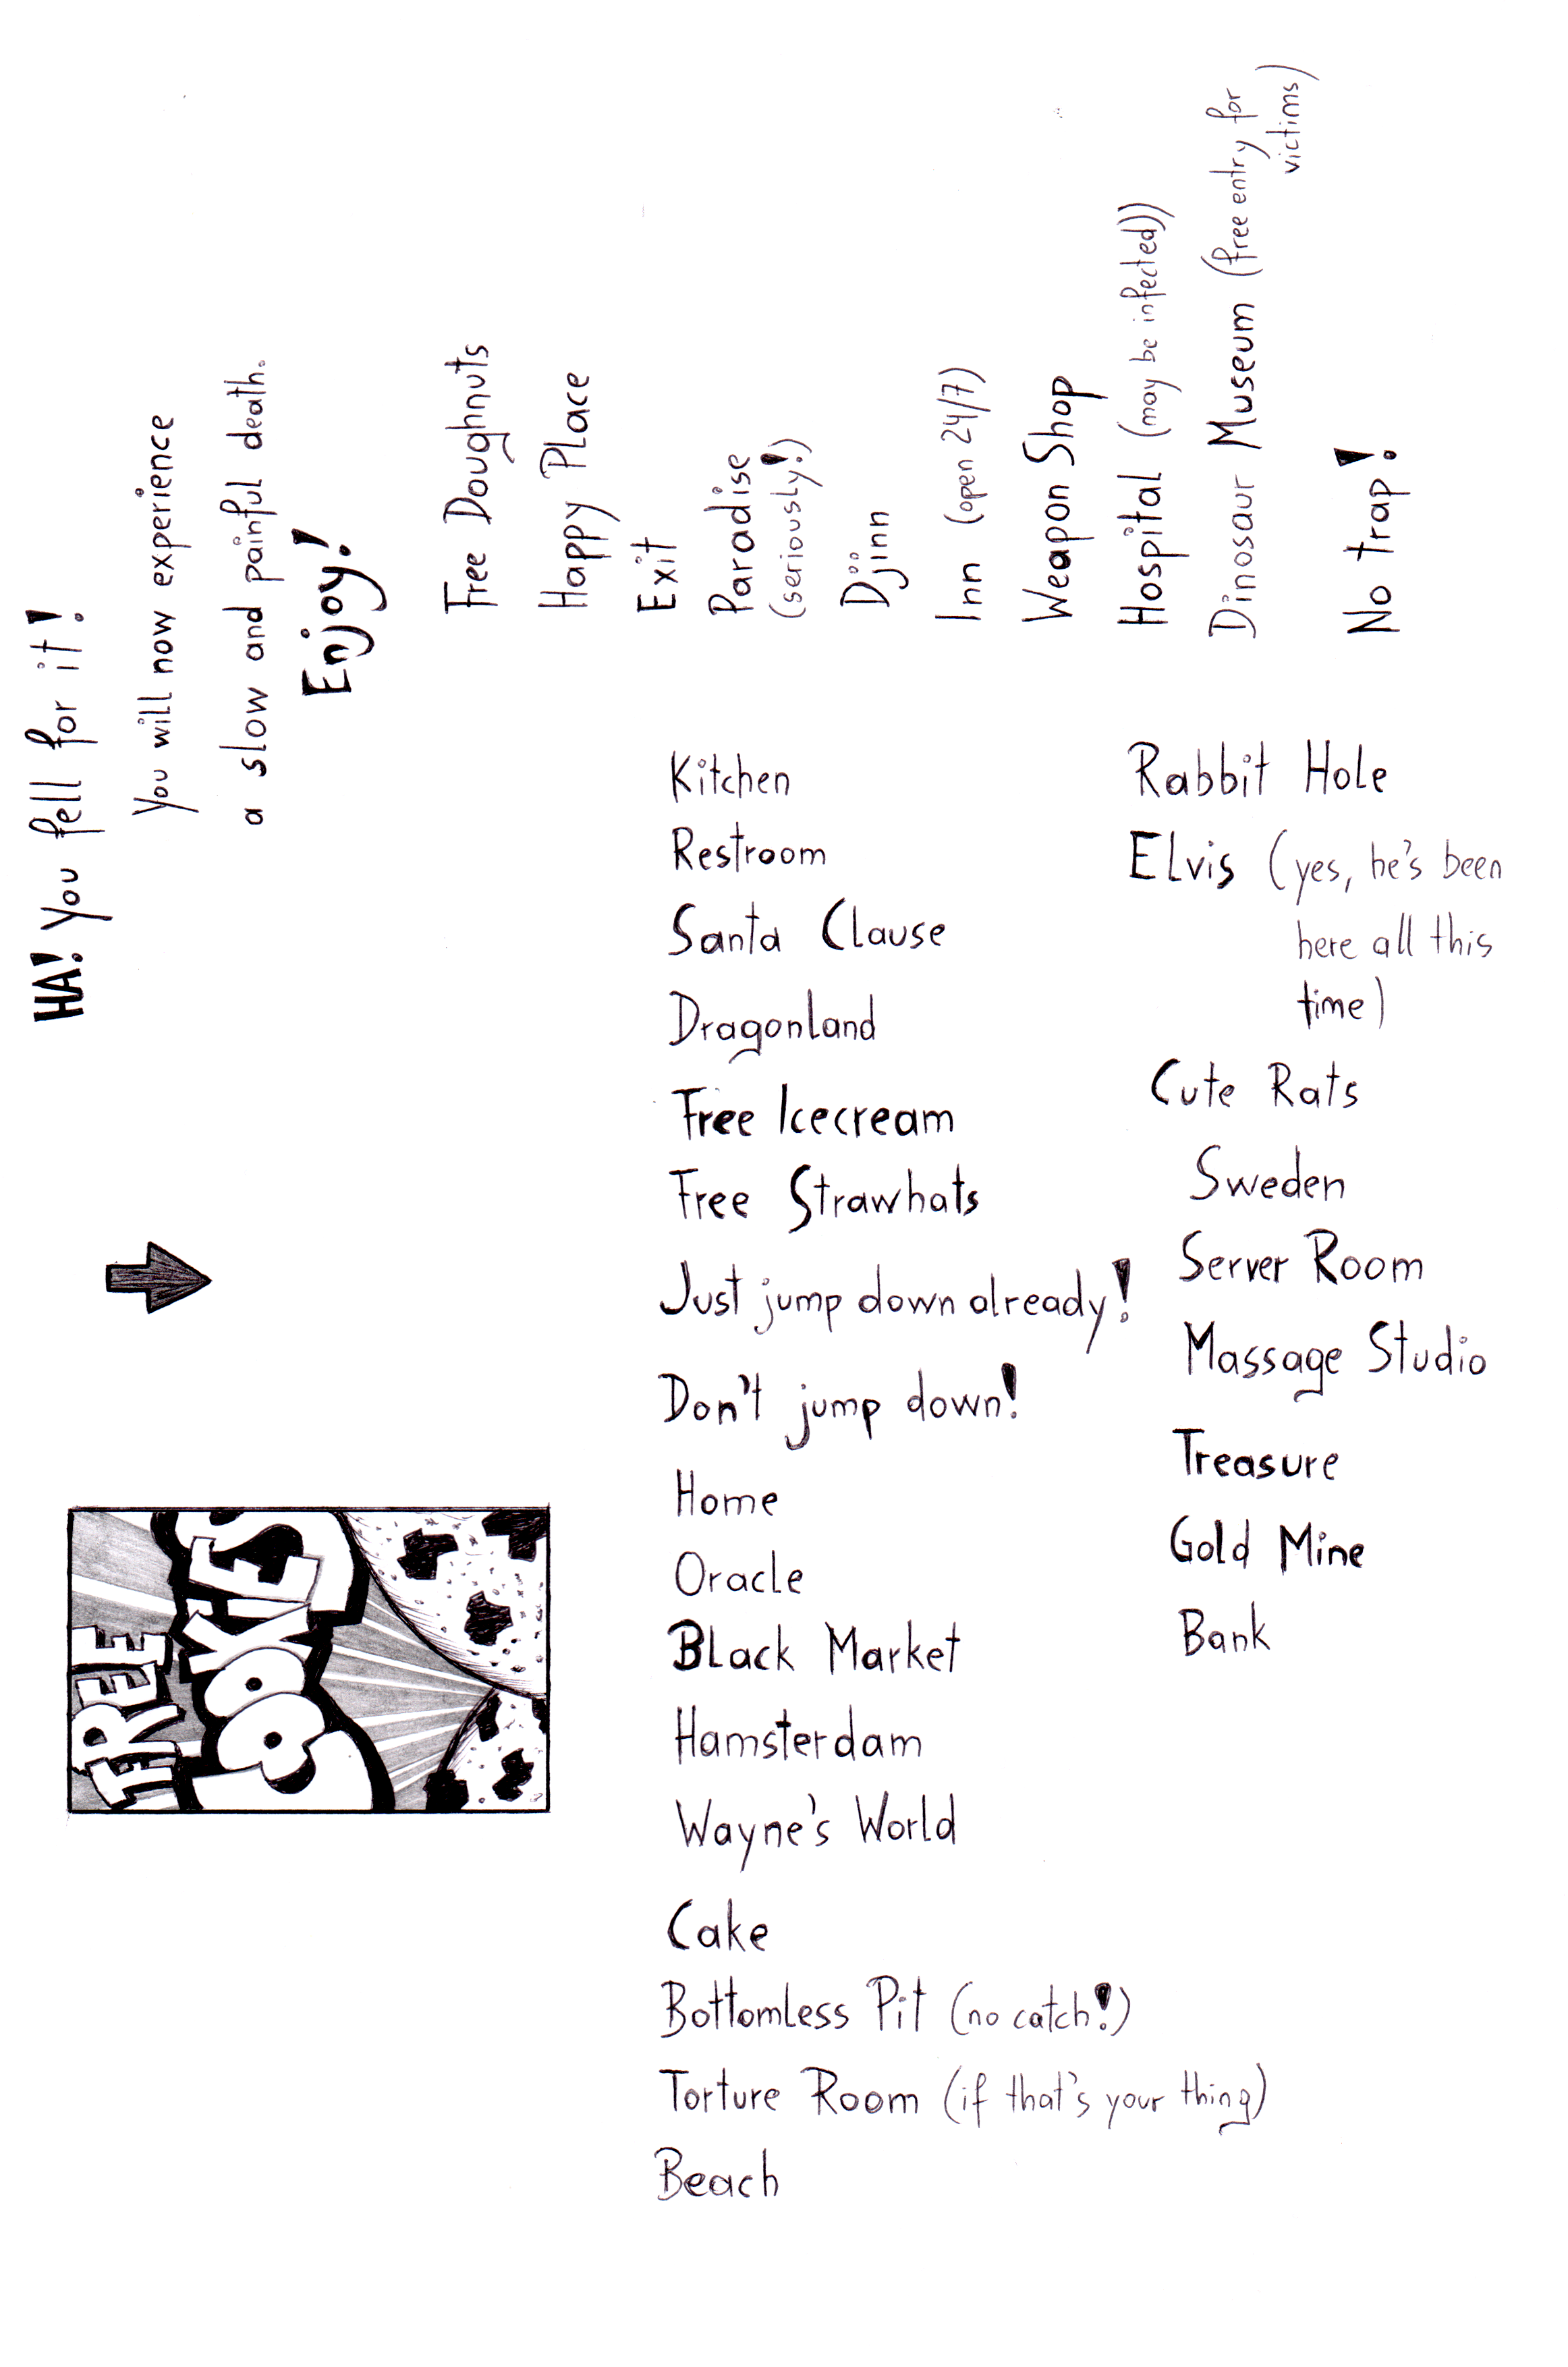 HA! You fell for it!
You will now experience
a slow and painful death.
Enjoy!
Free Doughnuts
Happy Place
Exit
Paradise
(seriously!)
Djinn
Inn (open 24/7)
Weapon Shop
Hospital (may be infected))
Dinosaur Museum (free entry for
victims)
No trap!
Kitchen
Restroom
Santa Clause
Dragonland
Free Icecream
Free Strawhats
Just jump down already!
Don't jump down!
Home
Oracle
Black Market
Hamsterdam
Wayne's World
Cake
Bottomless Pit (no catch!)
Torture Room (if that's your thing)
Beach
Rabbit Hole
Elvis (yes, he's been
here all this
time)
Cute Rats
Sweden
Server Room
Massage Studio
Treasure
Gold Mine
Bank
FREE
COOKIES